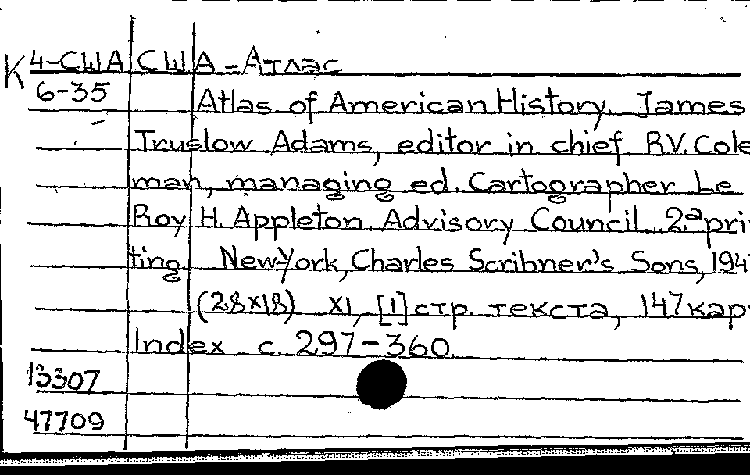 К 4-США США-Атлас
6-35 Atlas of American History. James
Truslow Adams, editor in chief. R.V. Cole
man, managing ed. Cartographer Le
Roy H. Appleton. Advisory Council. 2ª pri
ting. New-York, Charles Scribner's Sons, 194
(28x18) XI, [1] стр. текста, 147 кар
Index c. 297-360.
13307
47709